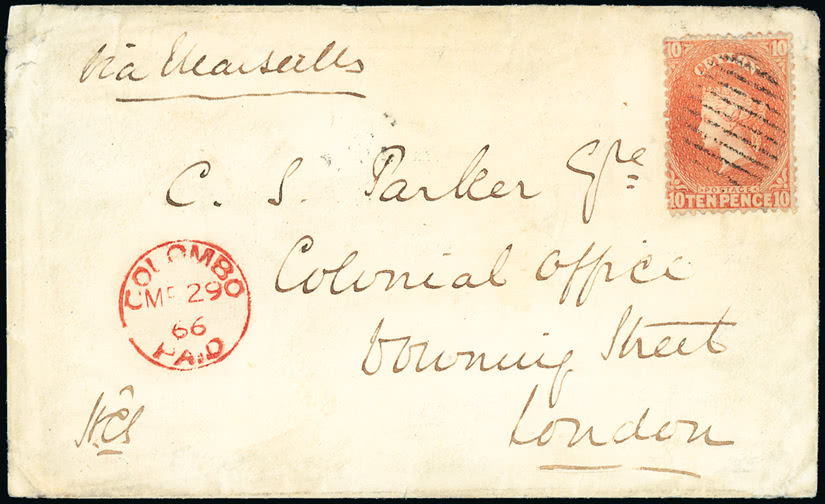 via Marseilles
10 10
CEYLON
POSTAGE
10 TEN PENCE 10
C. S. Parker Esqre
Colonial Office
Downing Street
London
COLOMBO
29
66
PAID